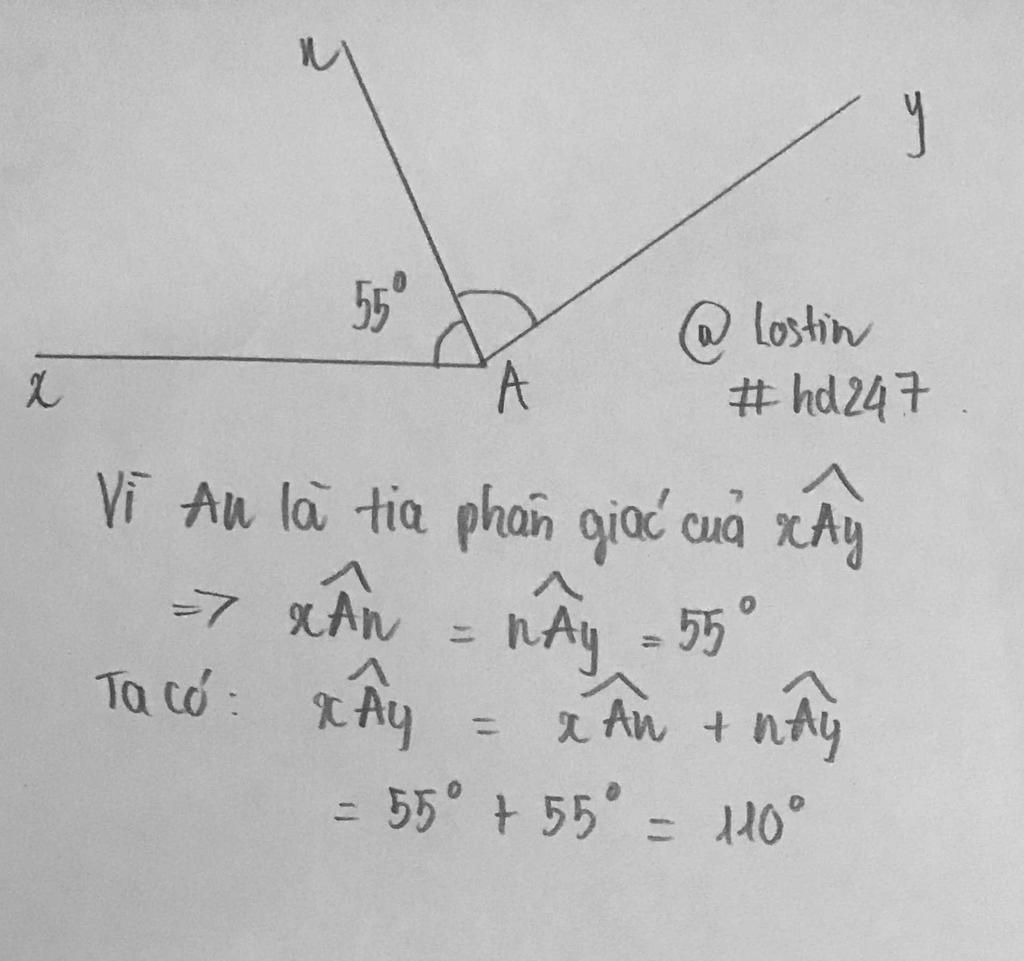 n
y
55°
x
A
@ lostin
# hd247
Vì An là tia phân giác của xÂy
=> xÂn = nÂy = 55°
Ta có: xÂy = xÂn + nÂy
= 55° + 55° = 110°